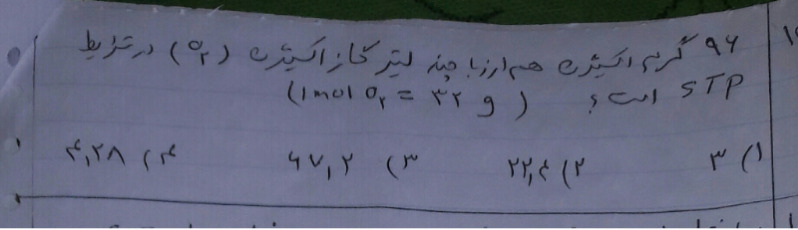 ۹۶ گرم اکسیژن هم ارز با چند لیتر گاز اکسیژن (O۲) در شرایط
STP است؟ (1mol O۲ = ۳۲ g)
۱) ۳ ۲) ۲۲,۴ ۳) ۶۷,۲ ۴) ۴,۲۸